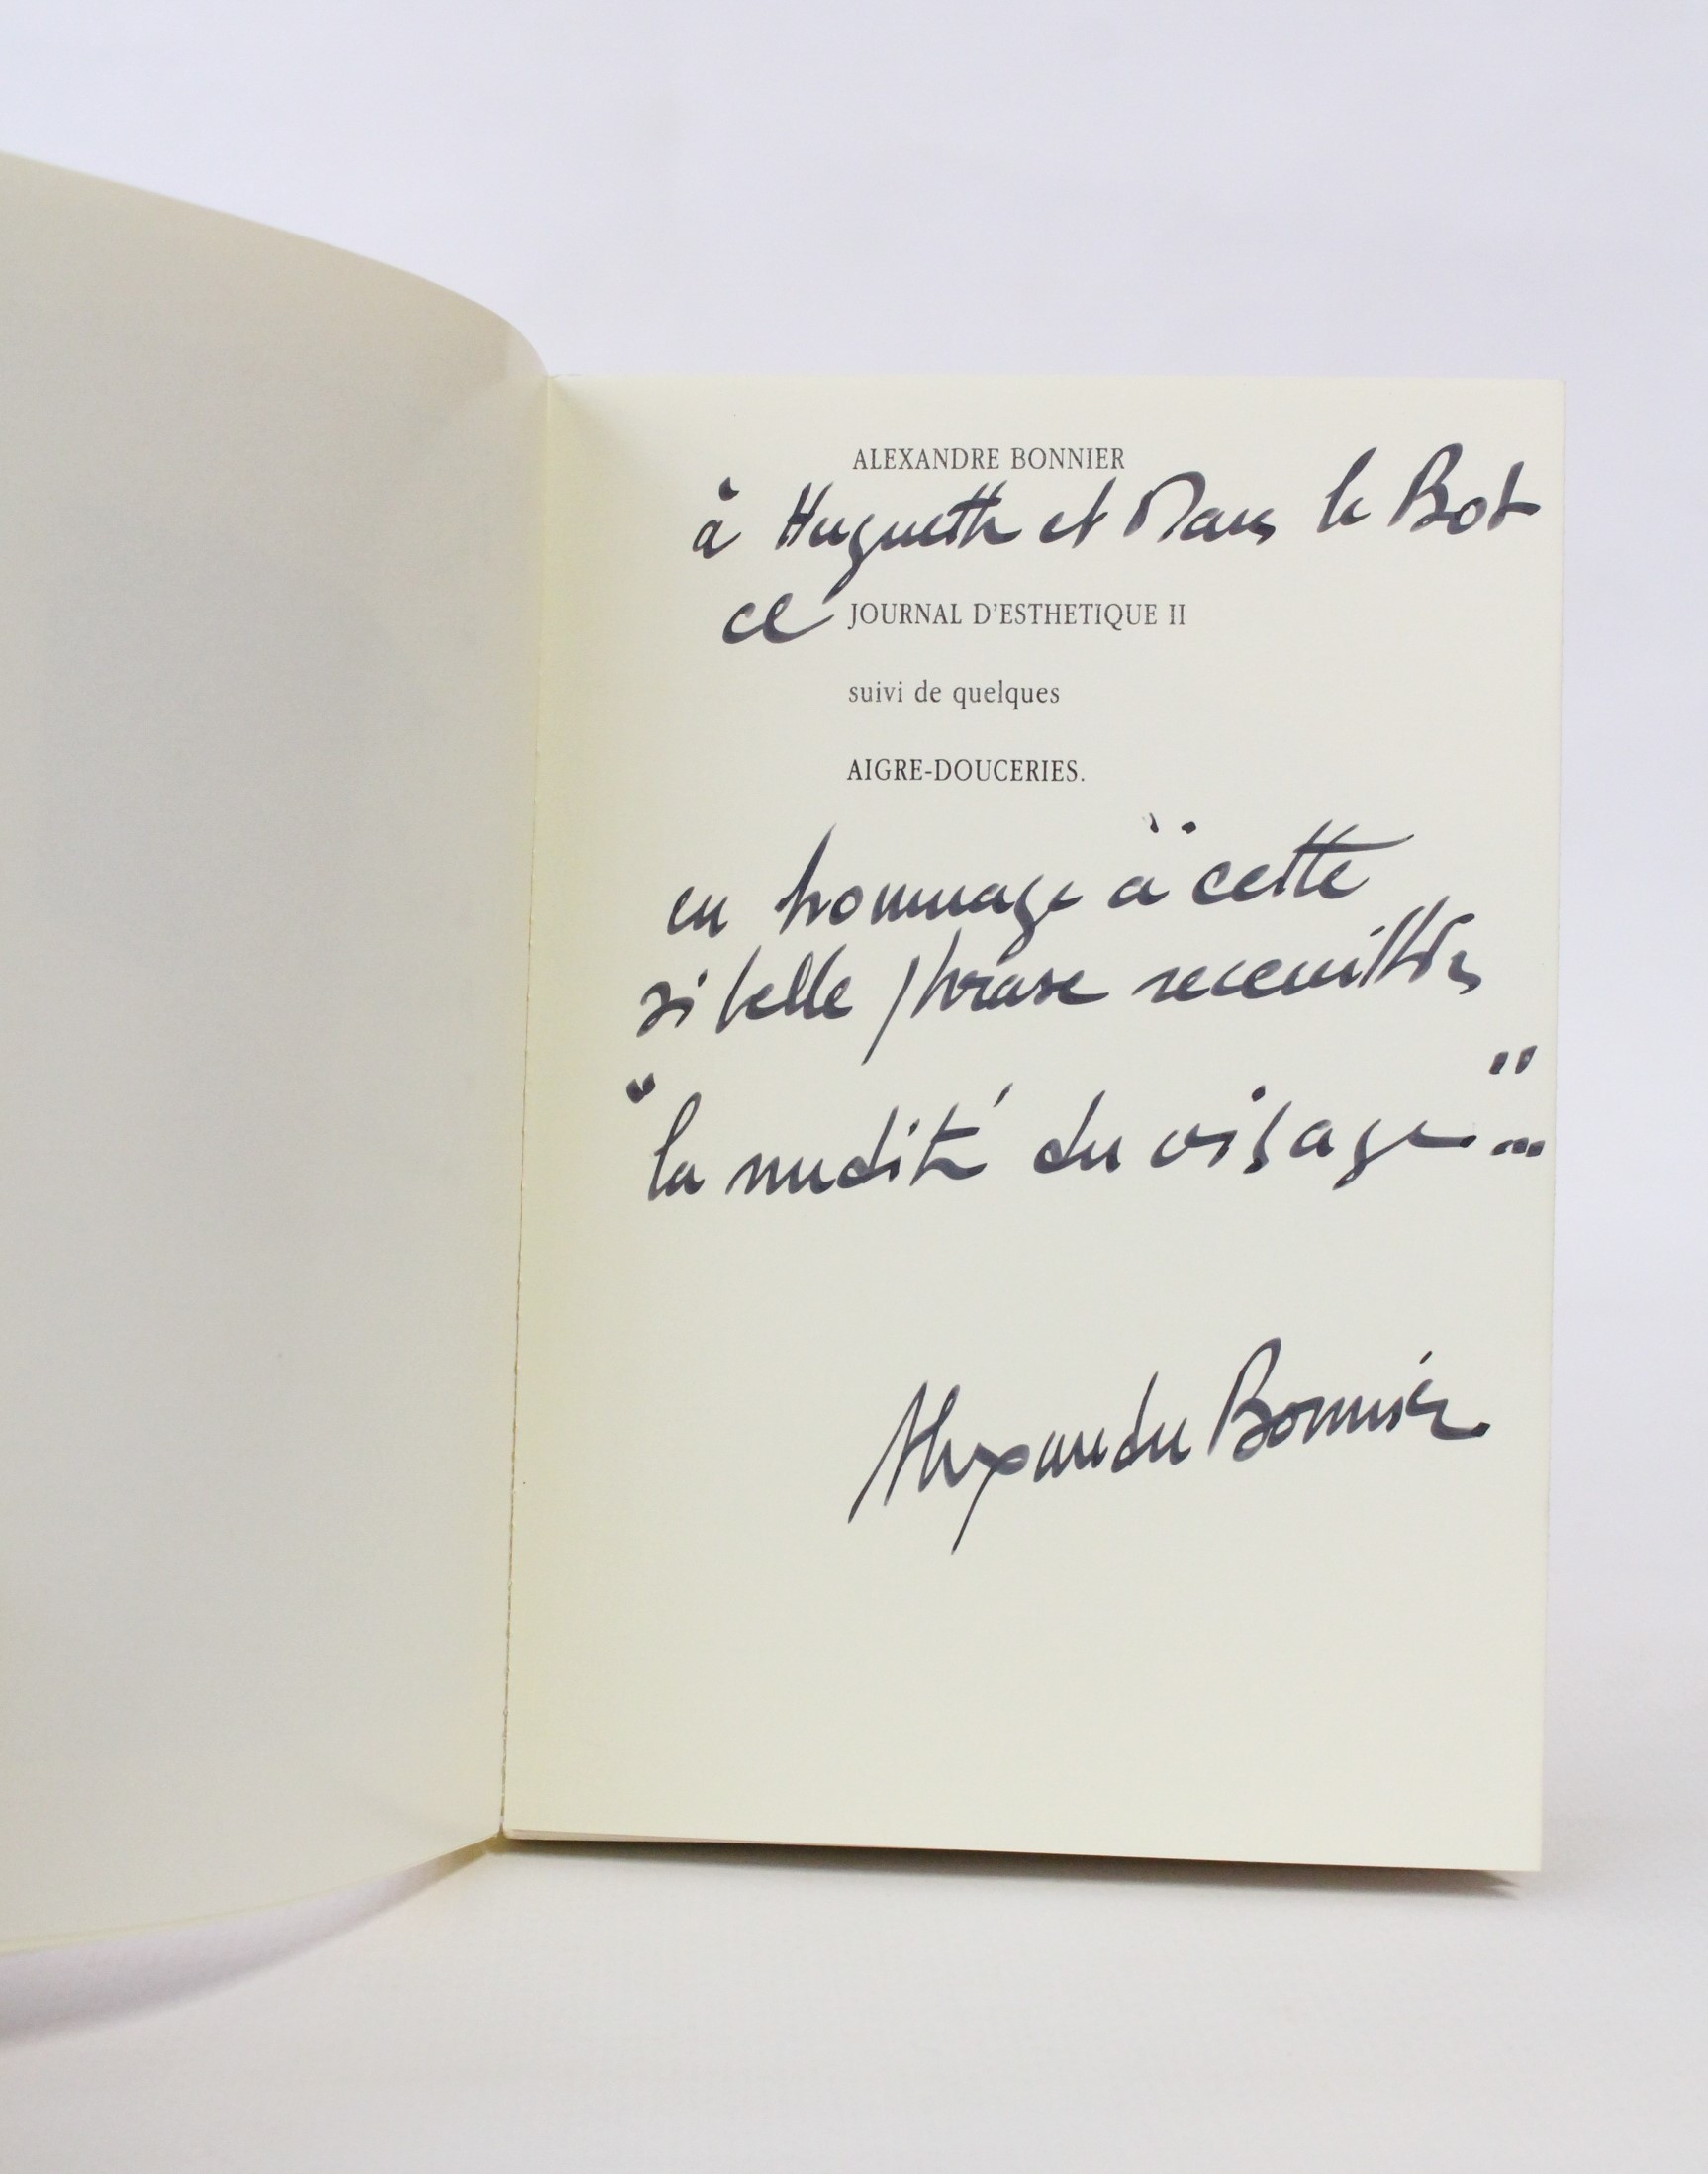 ALEXANDRE BONNIER
à Huguette et Marc le Bot
ce JOURNAL D'ESTHETIQUE II
suivi de quelques
AIGRE-DOUCERIES.
en hommage à cette
si belle phrase
"la nudité du visage"...
Alexandre Bonnier